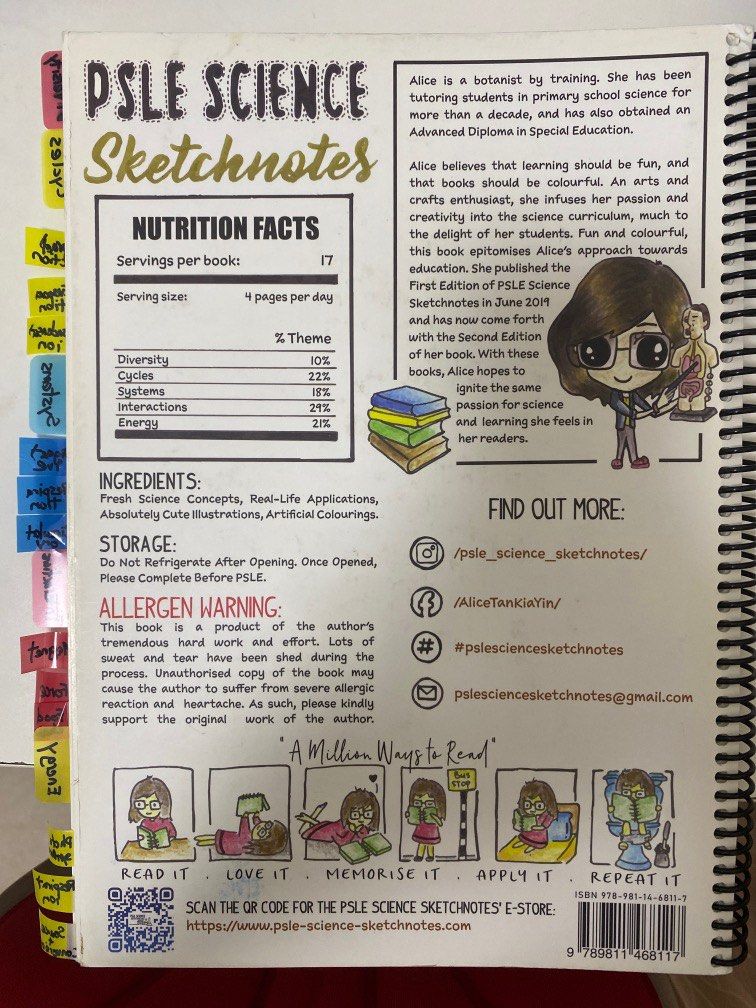 PSLE SCIENCE
Sketchnotes
NUTRITION FACTS
Servings per book: 17
Serving size: 4 pages per day
% Theme
Diversity 10%
Cycles 22%
Systems 18%
Interactions 29%
Energy 21%
INGREDIENTS:
Fresh Science Concepts, Real-Life Applications,
Absolutely Cute Illustrations, Artificial Colourings.
STORAGE:
Do Not Refrigerate After Opening. Once Opened,
Please Complete Before PSLE.
ALLERGEN WARNING:
This book is a product of the author's
tremendous hard work and effort. Lots of
sweat and tear have been shed during the
process. Unauthorised copy of the book may
cause the author to suffer from severe allergic
reaction and heartache. As such, please kindly
support the original work of the author.
Alice is a botanist by training. She has been
tutoring students in primary school science for
more than a decade, and has also obtained an
Advanced Diploma in Special Education.
Alice believes that learning should be fun, and
that books should be colourful. An arts and
crafts enthusiast, she infuses her passion and
creativity into the science curriculum, much to
the delight of her students. Fun and colourful,
this book epitomises Alice's approach towards
education. She published the
First Edition of PSLE Science
Sketchnotes in June 2019
and has now come forth
with the Second Edition
of her book. With these
books, Alice hopes to
ignite the same
passion for science
and learning she feels in
her readers.
FIND OUT MORE:
/psle_science_sketchnotes/
/AliceTanKiaYin/
#
#pslesciencesketchnotes
pslesciencesketchnotes@gmail.com
"A Million Ways to Read"
BUS
STOP
READ IT . LOVE IT . MEMORISE IT . APPLY IT . REPEAT IT
SCAN THE QR CODE FOR THE PSLE SCIENCE SKETCHNOTES' E-STORE:
https://www.psle-science-sketchnotes.com
ISBN 978-981-14-6811-7
9 789811 468117
Cycles
Systems
Energy